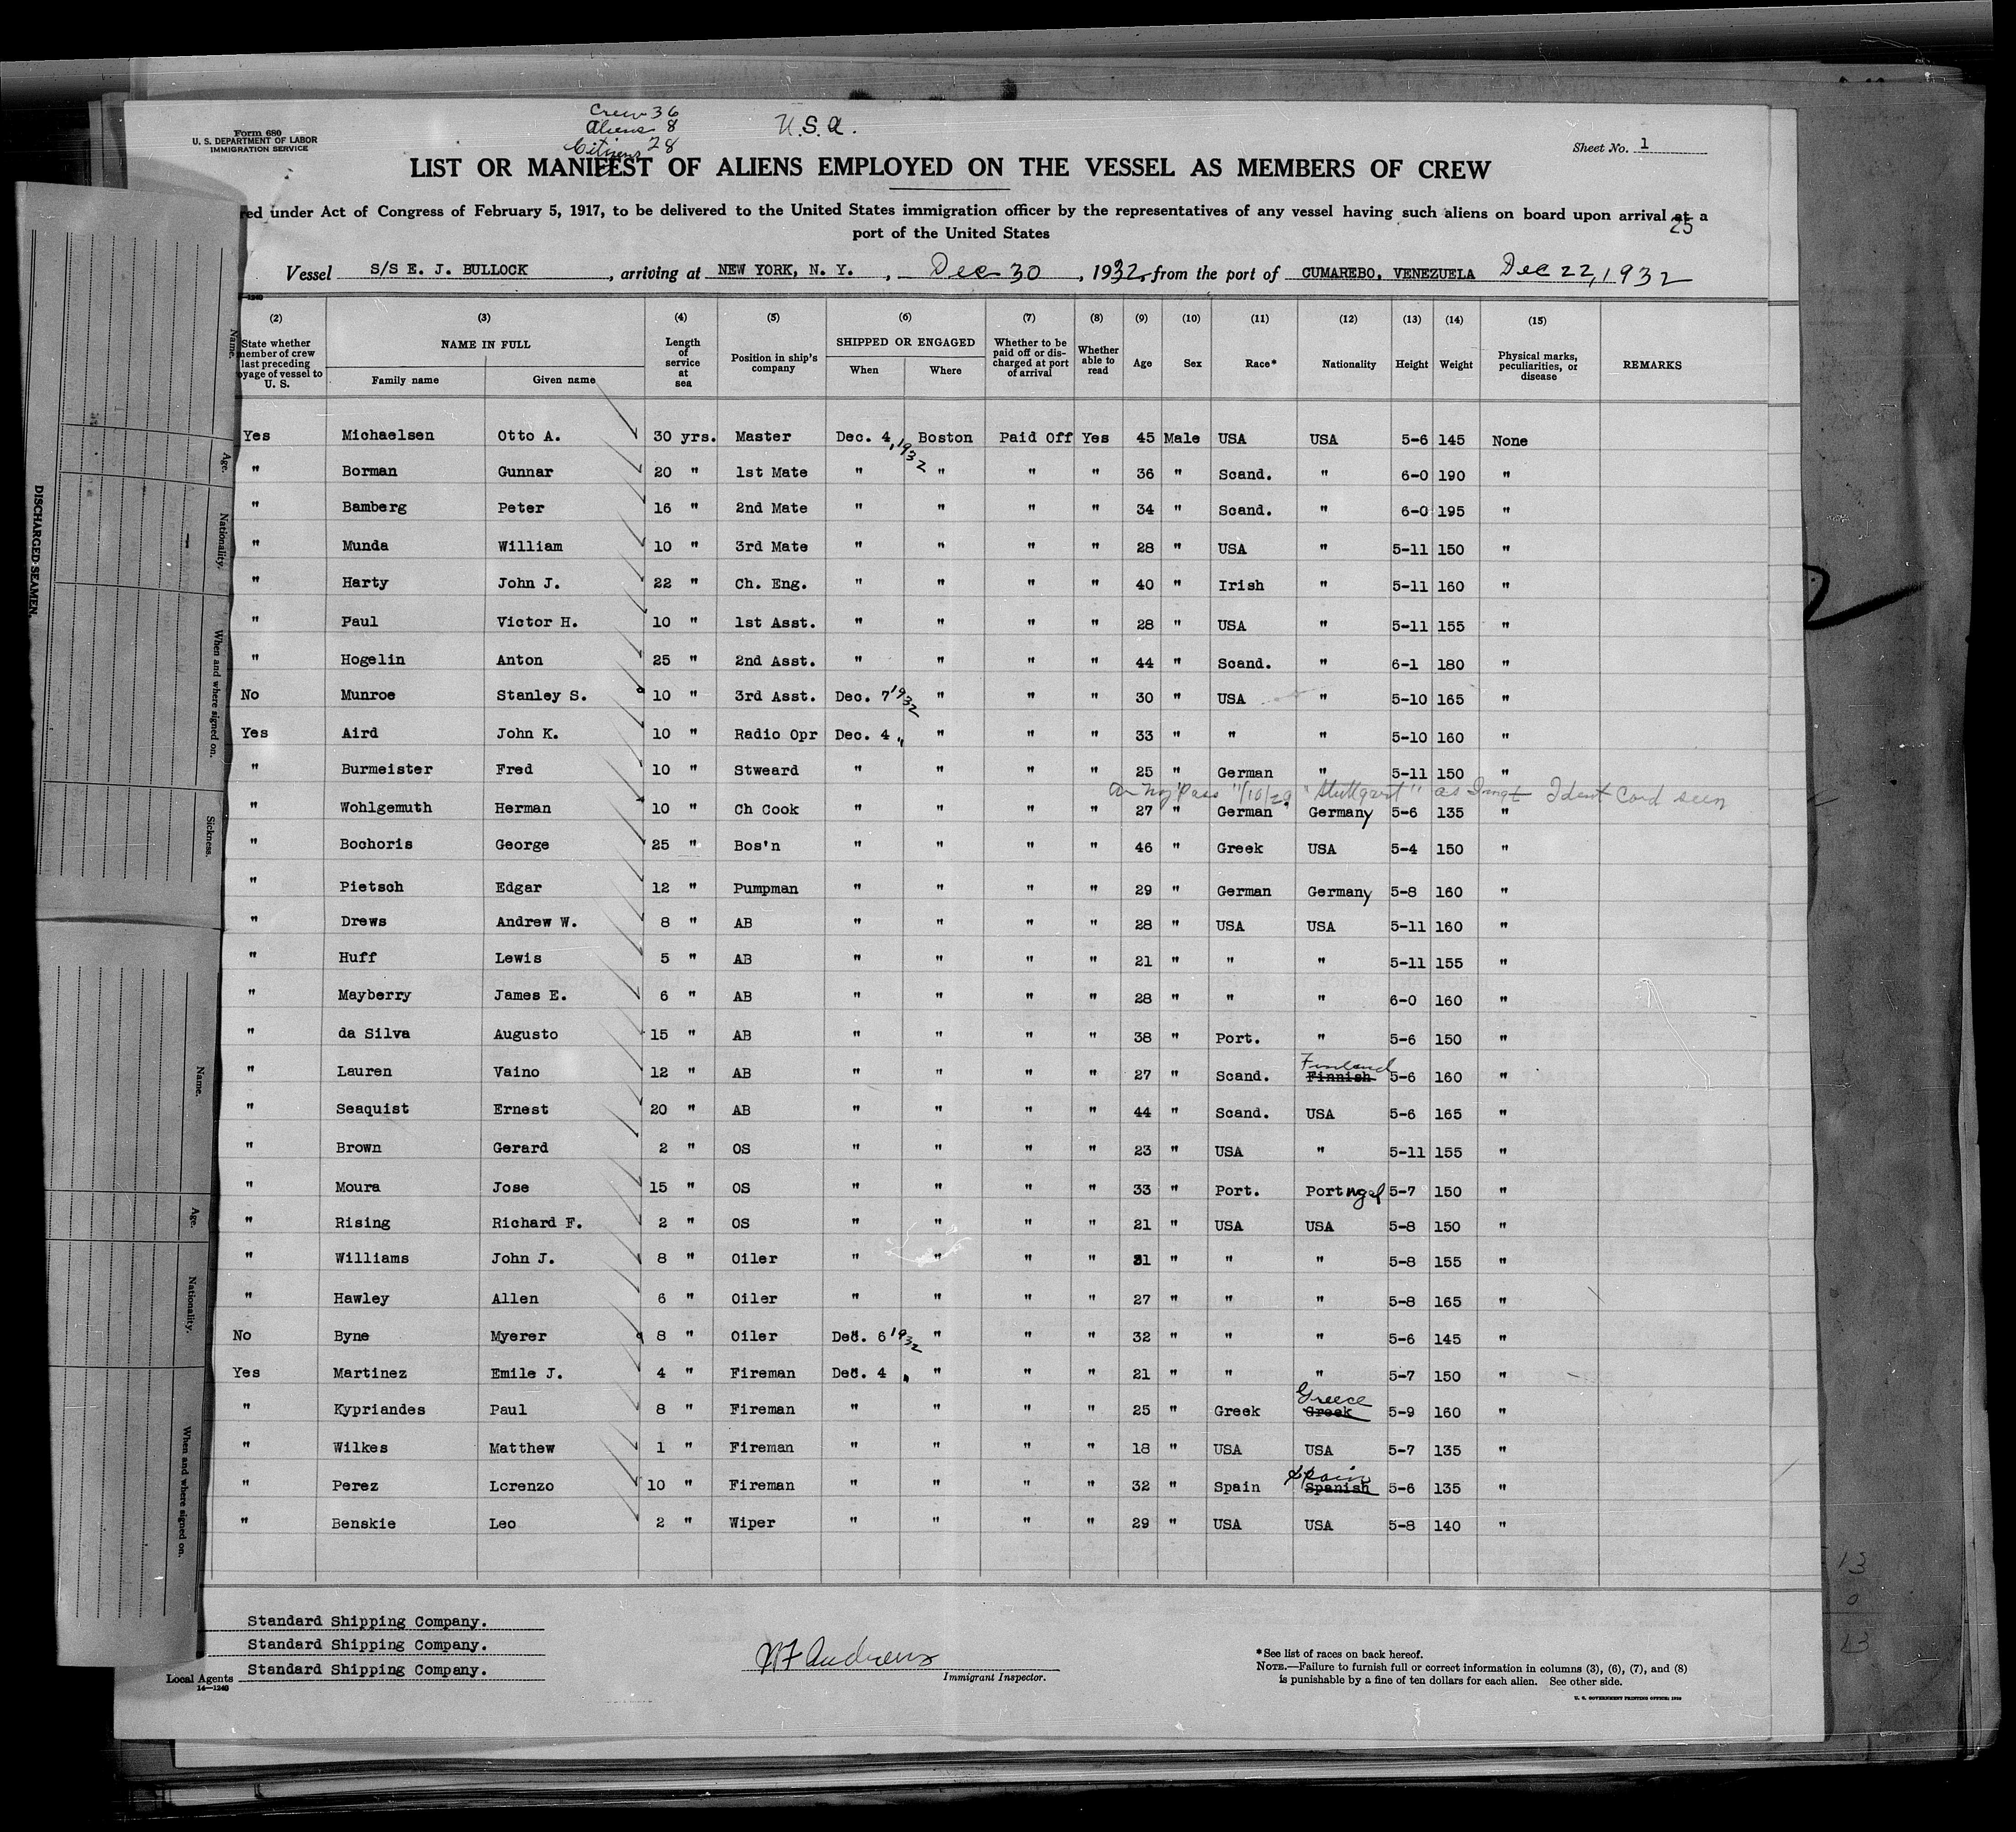 Form 680
U. S. DEPARTMENT OF LABOR
IMMIGRATION SERVICE
Crew 36
Aliens 8
Citizens 28
U.S.A.
Sheet No. 1
LIST OR MANIFEST OF ALIENS EMPLOYED ON THE VESSEL AS MEMBERS OF CREW
red under Act of Congress of February 5, 1917, to be delivered to the United States immigration officer by the representatives of any vessel having such aliens on board upon arrival at a
port of the United States
25
Vessel S/S E. J. BULLOCK, arriving at NEW YORK, N. Y., Dec 30, 1932, from the port of CUMAREBO, VENEZUELA Dec 22, 1932
(2) (3) (4) (5) (6) (7) (8) (9) (10) (11) (12) (13) (14) (15)
State whether member of crew last preceding oyage of vessel to U. S.
NAME IN FULL
Family name Given name
Length of service at sea
Position in ship's company
SHIPPED OR ENGAGED
When Where
Whether to be paid off or discharged at port of arrival
Whether able to read
Age Sex Race* Nationality Height Weight
Physical marks, peculiarities, or disease
REMARKS
Yes Michaelsen Otto A. 30 yrs. Master Dec. 4, 1932 Boston Paid Off Yes 45 Male USA USA 5-6 145 None
" Borman Gunnar 20 " 1st Mate " " " " 36 " Scand. " 6-0 190 "
" Bamberg Peter 16 " 2nd Mate " " " " 34 " Scand. " 6-0 195 "
" Munda William 10 " 3rd Mate " " " " 28 " USA " 5-11 150 "
" Harty John J. 22 " Ch. Eng. " " " " 40 " Irish " 5-11 160 "
" Paul Victor H. 10 " 1st Asst. " " " " 28 " USA " 5-11 155 "
" Hogelin Anton 25 " 2nd Asst. " " " " 44 " Scand. " 6-1 180 "
No Munroe Stanley S. 10 " 3rd Asst. Dec. 7 1932 " " " 30 " USA " 5-10 165 "
Yes Aird John K. 10 " Radio Opr Dec. 4 " " " " 33 " " " 5-10 160 "
" Burmeister Fred 10 " Stweard " " " " 25 " German " 5-11 150 "
Arr NY Pass 11/10/29 "Stuttgart" as Immgt Ident Card seen
" Wohlgemuth Herman 10 " Ch Cook " " " " 27 " German Germany 5-6 135 "
" Bochoris George 25 " Bos'n " " " " 46 " Greek USA 5-4 150 "
" Pietsch Edgar 12 " Pumpman " " " " 29 " German Germany 5-8 160 "
" Drews Andrew W. 8 " AB " " " " 28 " USA USA 5-11 160 "
" Huff Lewis 5 " AB " " " " 21 " " " 5-11 155 "
" Mayberry James E. 6 " AB " " " " 28 " " " 6-0 160 "
" da Silva Augusto 15 " AB " " " " 38 " Port. " 5-6 150 "
" Lauren Vaino 12 " AB " " " " 27 " Scand. Finnish Finland 5-6 160 "
" Seaquist Ernest 20 " AB " " " " 44 " Scand. USA 5-6 165 "
" Brown Gerard 2 " OS " " " " 23 " USA " 5-11 155 "
" Moura Jose 15 " OS " " " " 33 " Port. Portugal 5-7 150 "
" Rising Richard F. 2 " OS " " " " 21 " USA USA 5-8 150 "
" Williams John J. 8 " Oiler " " " " 31 " " " 5-8 155 "
" Hawley Allen 6 " Oiler " " " " 27 " " " 5-8 165 "
No Byne Myerer 8 " Oiler Dec. 6 1932 " " " 32 " " " 5-6 145 "
Yes Martinez Emile J. 4 " Fireman Dec. 4 " " " " 21 " " " 5-7 150 "
" Kypriandes Paul 8 " Fireman " " " " 25 " Greek Greek Greece 5-9 160 "
" Wilkes Matthew 1 " Fireman " " " " 18 " USA USA 5-7 135 "
" Perez Lorenzo 10 " Fireman " " " " 32 " Spain Spanish Spain 5-6 135 "
" Benskie Leo 2 " Wiper " " " " 29 " USA USA 5-8 140 "
Standard Shipping Company.
Standard Shipping Company.
Local Agents Standard Shipping Company.
14—1240
Immigrant Inspector.
* See list of races on back hereof.
NOTE.—Failure to furnish full or correct information in columns (3), (6), (7), and (8)
is punishable by a fine of ten dollars for each alien. See other side.
U. S. GOVERNMENT PRINTING OFFICE: 1930
DISCHARGED SEAMEN.
Name.
Age.
Nationality.
When and where signed on.
Sickness.
Name.
Age.
Nationality.
When and where signed on.
13
0
13